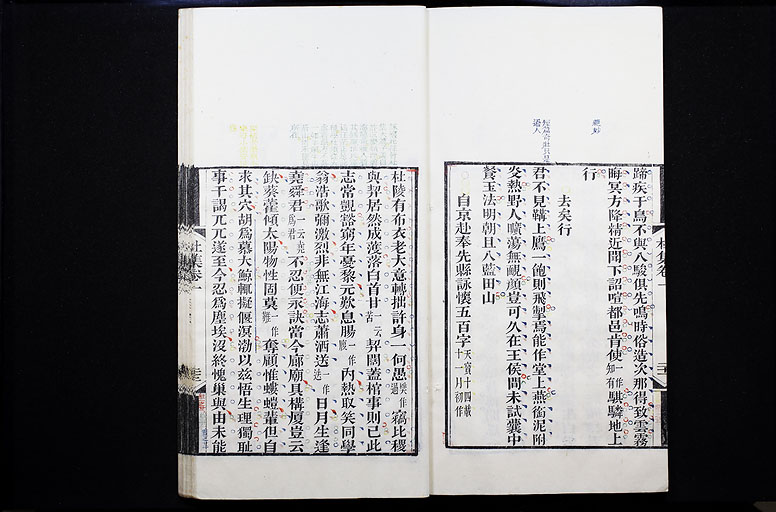 蹄疾于鳥不與八駿俱先鳴時俗造次那得致雲霧
晦冥方降精近聞下詔喧都邑肯使一作知有騏驎地上
行
去矣行
君不見鞲上鷹一飽則飛掣焉能作堂上燕銜泥附
炎熱野人曠蕩無靦顏豈可久在王侯間未試囊中
餐玉法明朝且入藍田山
自京赴奉先縣詠懷五百字天寶十四載十一月初作
杜集卷一
杜陵有布衣老大意轉拙許身一何愚竊比稷
與契居然成濩落白首甘一云苦契闊蓋棺事則已此
志常覬豁窮年憂黎元歎息腸一作腹內熱取笑同學
翁浩歌彌激烈非無江海志蕭洒送一作迭日月生逢
堯舜君一云堯為君不忍便永訣當今廊廟具構厦豈云
缺葵藿傾太陽物性固莫一作難奪顧惟螻螘輩但自
求其穴胡為慕大鯨輒擬偃溟渤以兹悟生理獨恥
事干謁兀兀遂至今忍為塵埃沒終愧巢與由未能
杜集卷一